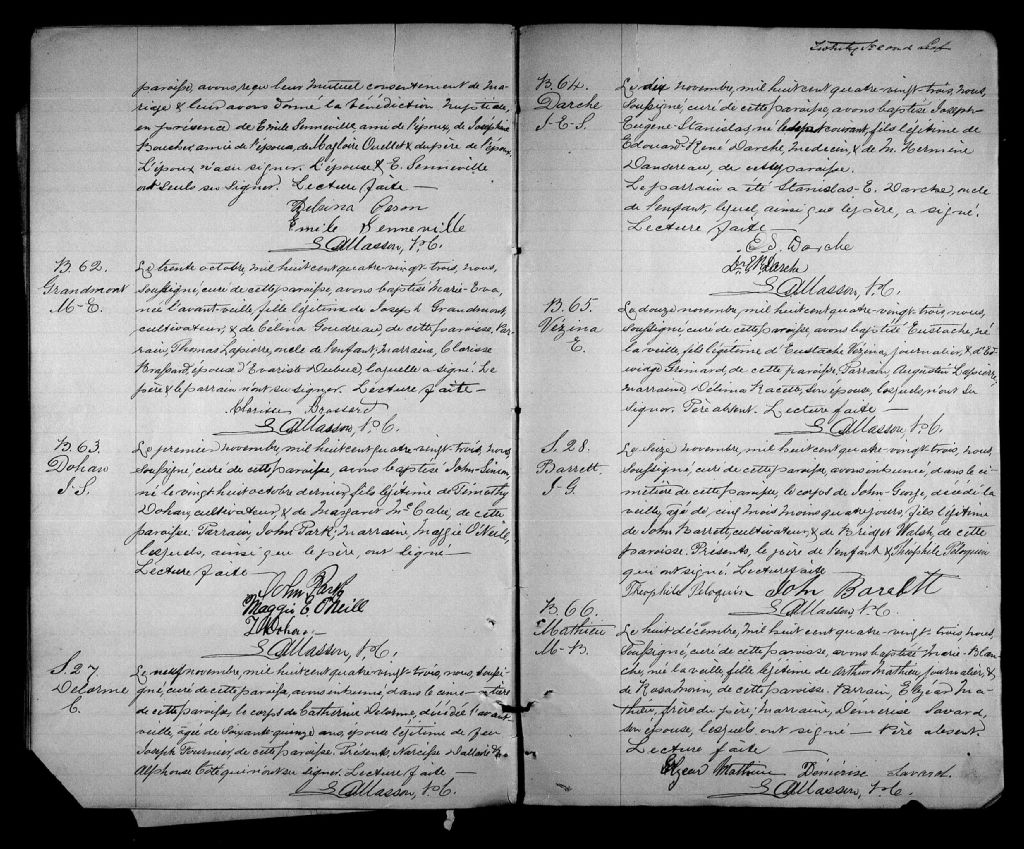 paroisse, avons reçu leur mutuel consentement de ma-
riage & leur avons donné la bénédiction nuptiale,
en présence de Emile Senneville ami de l'époux, de Joséphine
Boucher, amie de l'épouse, de Magloire Ouellet & du père de l'époux.
L'époux n'a su signer. L'épouse & E. Senneville
ont seuls su signer. Lecture faite —
Delvina
Emile Senneville
Masson, P.C.
B. 62.
Grandmont
M-E.
Le trente octobre, mil huit cent quatre-vingt-trois, nous,
soussigné, curé de cette paroisse, avons baptisé Marie-Eva,
née l'avant-veille, fille légitime de Joseph Grandmont,
cultivateur, & de Célina Goudreau de cette paroisse. Par-
rain, Thomas Lapierre, oncle de l'enfant; marraine, Clarisse
Brassard, épouse d'Evariste Dubuc, laquelle a signé. Le
père & le parrain n'ont su signer. Lecture faite —
Clarisse Brassard
Masson, P.C.
B. 63
Dohan
J-S.
Le premier novembre, mil huit cent quatre-vingt-trois, nous,
soussigné, curé de cette paroisse, avons baptisé John-Simon,
né le vingt huit octobre dernier, fils légitime de Timothy
Dohan, cultivateur, & de Margaret McCabe, de cette
paroisse. Parrain, John Park; marraine, Maggie O'Neill,
lesquels, ainsi que le père, ont signé —
Lecture faite —
John Park
Maggie E O'Neill
T Dohan
Masson, P.C.
S. 27
Delorme
C.
Le neuf novembre, mil huit cent quatre-vingt-trois, nous, soussi-
gné, curé de cette paroisse, avons inhumé, dans le cime-tière
de cette paroisse, le corps de Catherine Delorme, décédée l'avant
veille, âgée de soixante quinze ans, épouse légitime de feu
Joseph Fournier, de cette paroisse. Présents, Narcisse Dallaire &
Alphonse Côté qui n'ont su signer. Lecture faite —
Masson, P.C.
Twenty Second
B. 64.
Darche
J-E-S.
Le dix novembre, mil huit cent quatre-vingt-trois, nous,
soussigné, curé de cette paroisse, avons baptisé Joseph-
Eugène-Stanislas, né le sept courant, fils légitime de
Edouard René Darche, médecin, & de M. Hermine
Dansereau, de cette paroisse.
Le parrain a été Stanislas-E. Darche, oncle
de l'enfant, lequel, ainsi que le père, a signé.
Lecture faite
E S. Darche
Dr Darche
Masson, P.C.
B. 65
Vézina
E.
Le douze novembre, mil huit cent quatre-vingt-trois, nous,
soussigné, curé de cette paroisse, avons baptisé Eustache, né
la veille, fils légitime d'Eustache Vézina, journalier, & d'Ed-
wige de cette paroisse. Parrain, Augustin Lapierre;
marraine, Delima Racette, son épouse, lesquels n'ont su
signer. Père absent. Lecture faite —
Masson, P.C.
S. 28.
Barrett
J-G.
Le seize novembre, mil huit cent quatre-vingt-trois, nous,
soussigné, curé de cette paroisse, avons inhumé, dans le ci-
metière de cette paroisse, le corps de John-George, décédé la
veille, âgé de cinq mois moins quatre jours, fils légitime
de John Barrett, cultivateur, & de Bridget Walsh, de cette
paroisse. Présents, le père de l'enfant & Théophile Péloquin
qui ont signé. Lecture faite —
Théophile Péloquin John Barett
Masson, P.C.
B. 66.
Mathieu
M-B.
Le huit décembre, mil huit cent quatre-vingt-trois, nous,
soussigné, curé de cette paroisse, avons baptisé Marie-Blan-
che, née la veille, fille légitime de Arthur Mathieu, journalier, &
de Rosa Morin, de cette paroisse. Parrain, Elzéar Ma-
thieu, frère du père; marraine, Démerise Savard,
son épouse, lesquels ont signé — Père absent.
Lecture faite
Elzear Mathieu Démérise Savard.
Masson, P.C.